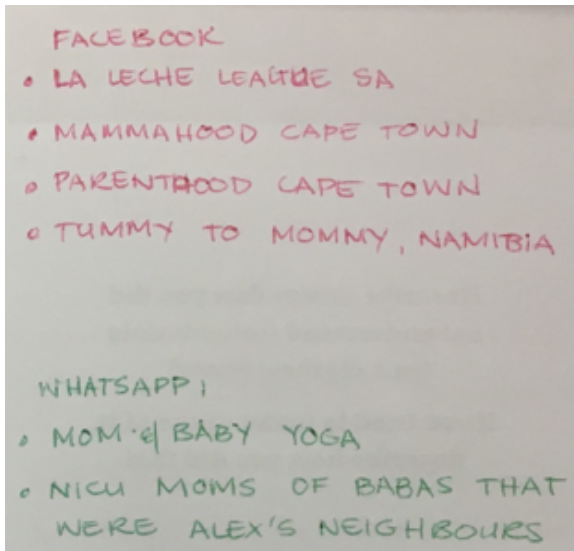 FACEBOOK
• LA LECHE LEAGUE SA
• MAMMAHOOD CAPE TOWN
• PARENTHOOD CAPE TOWN
• TUMMY TO MOMMY, NAMIBIA
WHATSAPP:
• MOM & BABY YOGA
• NICU MOMS OF BABAS THAT
WERE ALEX'S NEIGHBOURS